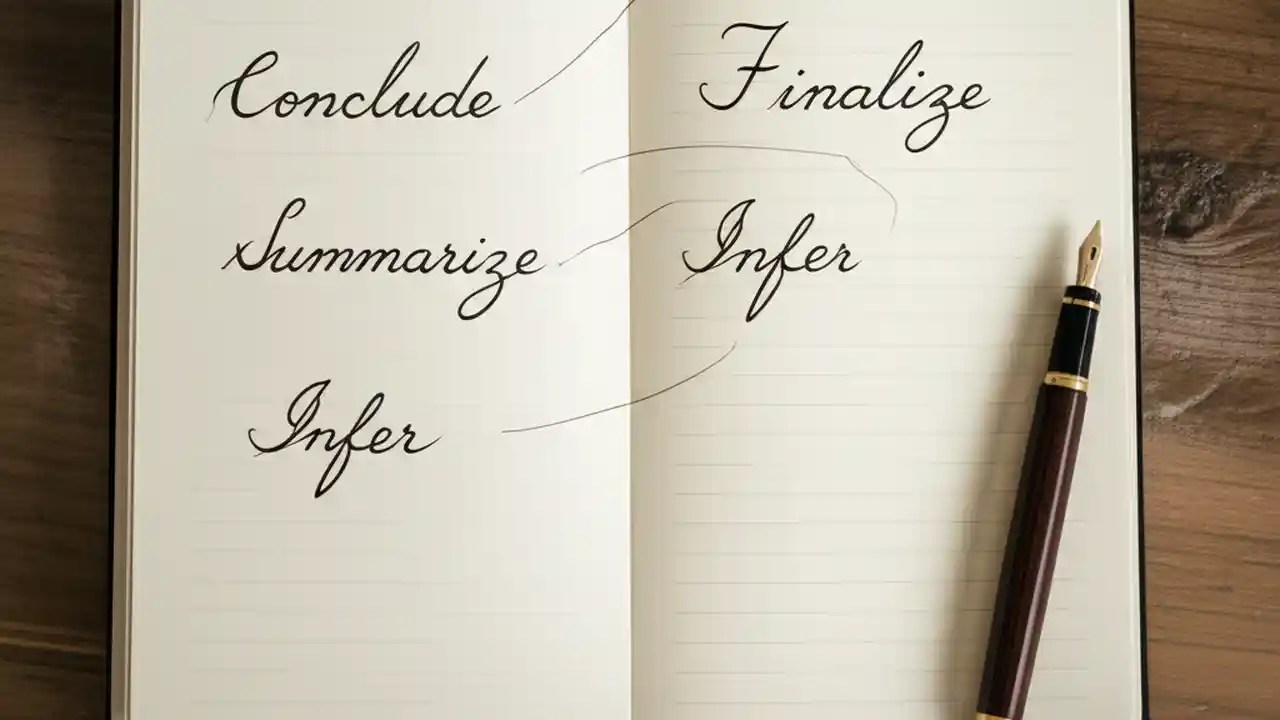 Conclude
Summarize
Infer
Finalize
Infer